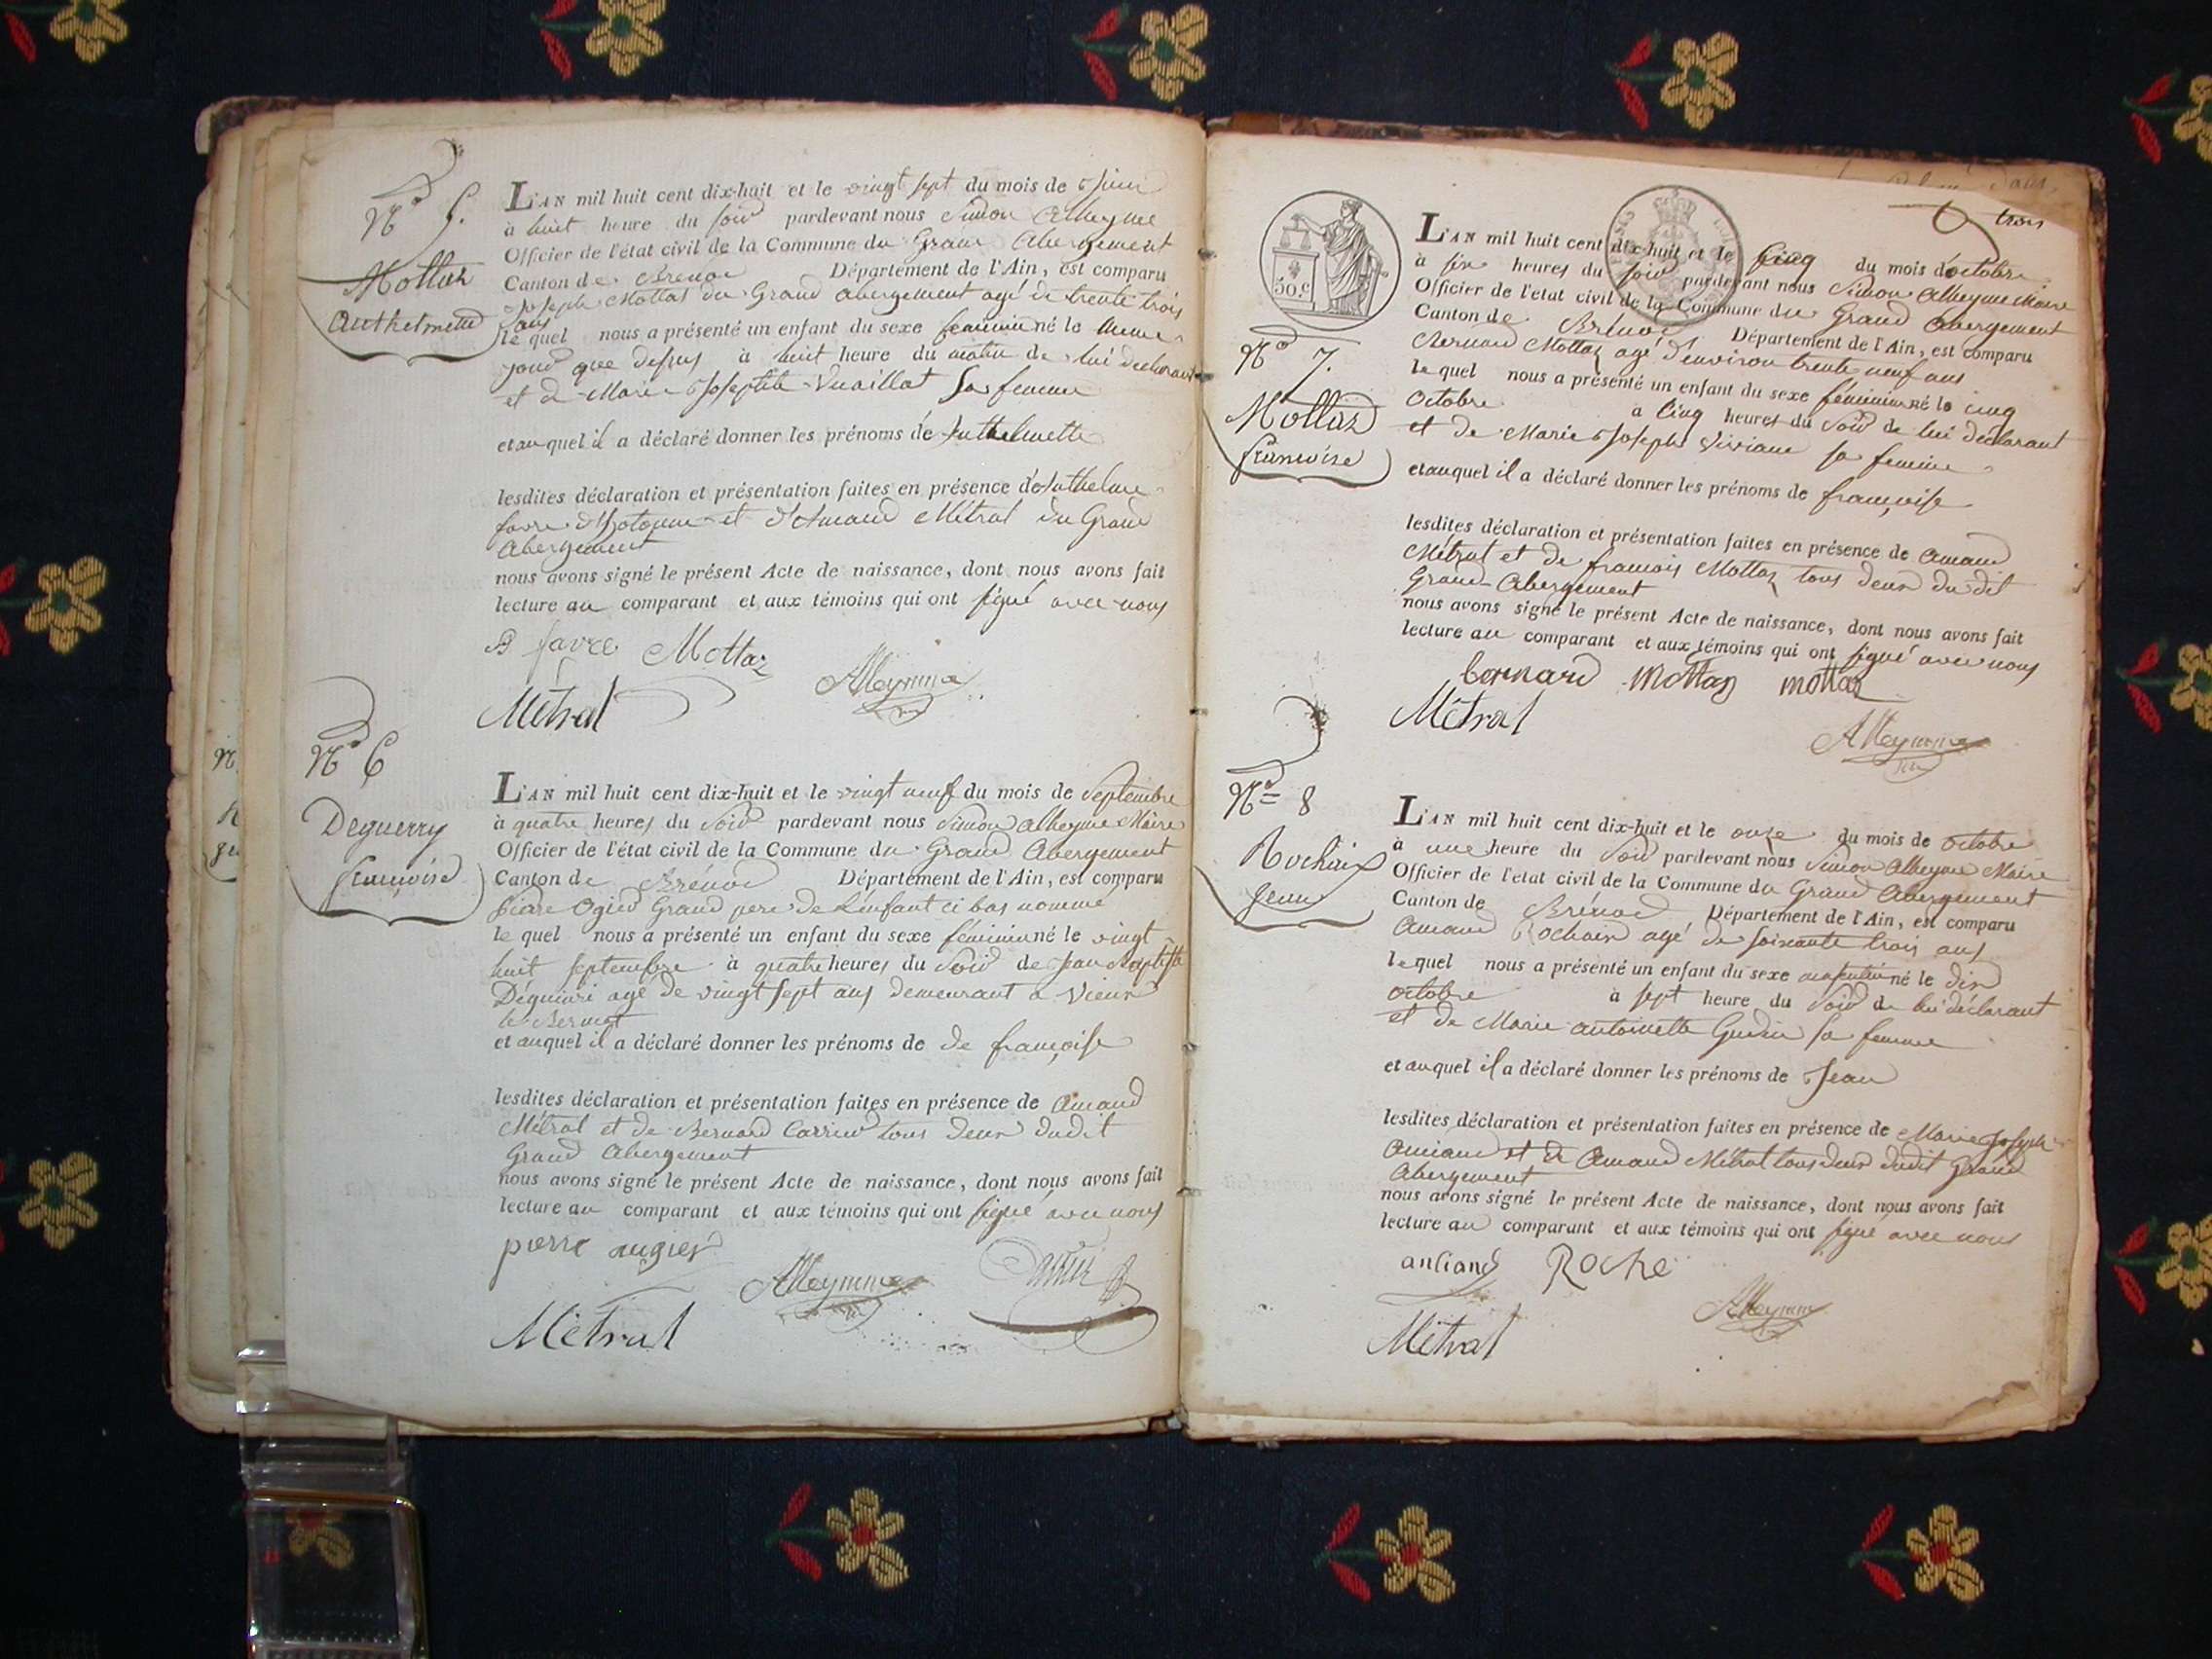 No 5.
Mottaz
Anthelmette
L'AN mil huit cent dix-huit et le vingt sept du mois de juin
à huit heure du soir pardevant nous Simon Alleyme
Officier de l'état civil de la Commune du Grand Abergement
Canton de Brénod Département de l'Ain, est comparu
Joseph Mottaz du Grand Abergement agé de trente trois
ans
le quel nous a présenté un enfant du sexe feminin né le meme
jour que dessus à huit heure du matin de lui declarant
et de Marie Josephte Vuaillat sa femme
et auquel il a déclaré donner les prénoms de Anthelmette
lesdites déclaration et présentation faites en présence de Anthelme
favre d'hotonne et d'Amand Métral du Grand
Abergement
nous avons signé le présent Acte de naissance, dont nous avons fait
lecture au comparant et aux témoins qui ont signé avec nous
favre Mottaz
Alleymme
Métral
No 6
Deguerry
françoise
L'AN mil huit cent dix-huit et le vingt neuf du mois de Septembre
à quatre heures du soir pardevant nous Simon Alleyme Maire
Officier de l'état civil de la Commune du Grand Abergement
Canton de Brénod Département de l'Ain, est comparu
piere Ogier Grand pere de Lenfant ci bas nommé
le quel nous a présenté un enfant du sexe féminin né le vingt
huit septembre à quatre heures du soir de Jean Baptiste
agé de vingt sept ans demeurant a Vieux
et auquel il a déclaré donner les prénoms de de françoise
lesdites déclaration et présentation faites en présence de Amand
Métral et de Bernard Carrier tous deux dudit
Grand Abergement
nous avons signé le présent Acte de naissance, dont nous avons fait
lecture au comparant et aux témoins qui ont signé avec nous
pierre augier
Alleymme
Métral
trois
50.c
No 7.
Mottaz
françoise
L'AN mil huit cent dix-huit et le cinq du mois d'octobre
à six heures du soir pardevant nous Simon Alleyme Maire
Officier de l'etat civil de la Commune du Grand Abergement
Canton de Brénod Département de l'Ain, est comparu
Bernard Mottaz agé d'environ trente neuf ans
le quel nous a présenté un enfant du sexe féminin né le cinq
octobre à cinq heures du soir de lui déclarant
et de Marie Josephe Viviane sa femme
et auquel il a déclaré donner les prénoms de françoise
lesdites déclaration et présentation faites en présence de Amand
Métral et de francois Mottaz tous deux du dit
Grand Abergement
nous avons signé le présent Acte de naissance, dont nous avons fait
lecture au comparant et aux témoins qui ont signé avec nous
bernard mottaz mottaz
Métral
Alleymme
No 8
Rochaix
Jean
L'AN mil huit cent dix-huit et le onze du mois de octobre
à une heure du soir pardevant nous Simon Alleyme Maire
Officier de l'etat civil de la Commune du Grand Abergement
Canton de Brénod Département de l'Ain, est comparu
Amand Rochaix agé de soixante trois ans
le quel nous a présenté un enfant du sexe masculin né le dix
octobre à sept heure du soir de lui déclarant
et de Marie antoinette Gudin sa femme
et auquel il a déclaré donner les prénoms de Jean
lesdites déclaration et présentation faites en présence de Marie Joseph
et de Amand Métral tous deux dudit Grand
Abergement
nous avons signé le présent Acte de naissance, dont nous avons fait
lecture au comparant et aux témoins qui ont signé avec nous
Roche
Alleymme
Métral